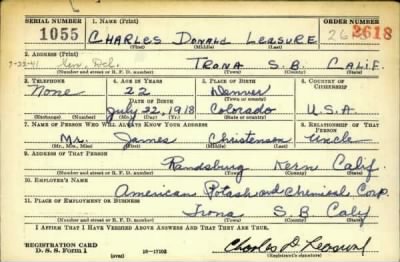 SERIAL NUMBER 1. NAME (Print) ORDER NUMBER
1055 CHARLES DONALD LEASURE 2618
(First) (Middle) (Last)
2. ADDRESS (Print)
7-22-41 Gen. Del. TRONA S.B. CALIF.
(Number and street or R. F. D. number) (Town) (County) (State)
3. TELEPHONE 4. AGE IN YEARS 5. PLACE OF BIRTH 6. COUNTRY OF CITIZENSHIP
None 22 Denver
DATE OF BIRTH (Town or county)
July 22, 1918 Colorado U.S.A.
(Exchange) (Number) (Mo.) (Day) (Yr.) (State or country)
7. NAME OF PERSON WHO WILL ALWAYS KNOW YOUR ADDRESS 8. RELATIONSHIP OF THAT PERSON
Mr. James Christensen Uncle
(Mr., Mrs., Miss) (First) (Middle) (Last)
9. ADDRESS OF THAT PERSON
Randsburg Kern Calif.
(Number and street or R. F. D. number) (Town) (County) (State)
10. EMPLOYER'S NAME
American Potash and Chemical Corp.
11. PLACE OF EMPLOYMENT OR BUSINESS
Trona S.B. Calif
(Number and street or R. F. D. number) (Town) (County) (State)
I AFFIRM THAT I HAVE VERIFIED ABOVE ANSWERS AND THAT THEY ARE TRUE.
REGISTRATION CARD
D. S. S. Form 1 (over) 16-17105 Charles D. Leasure
(Registrant's signature)